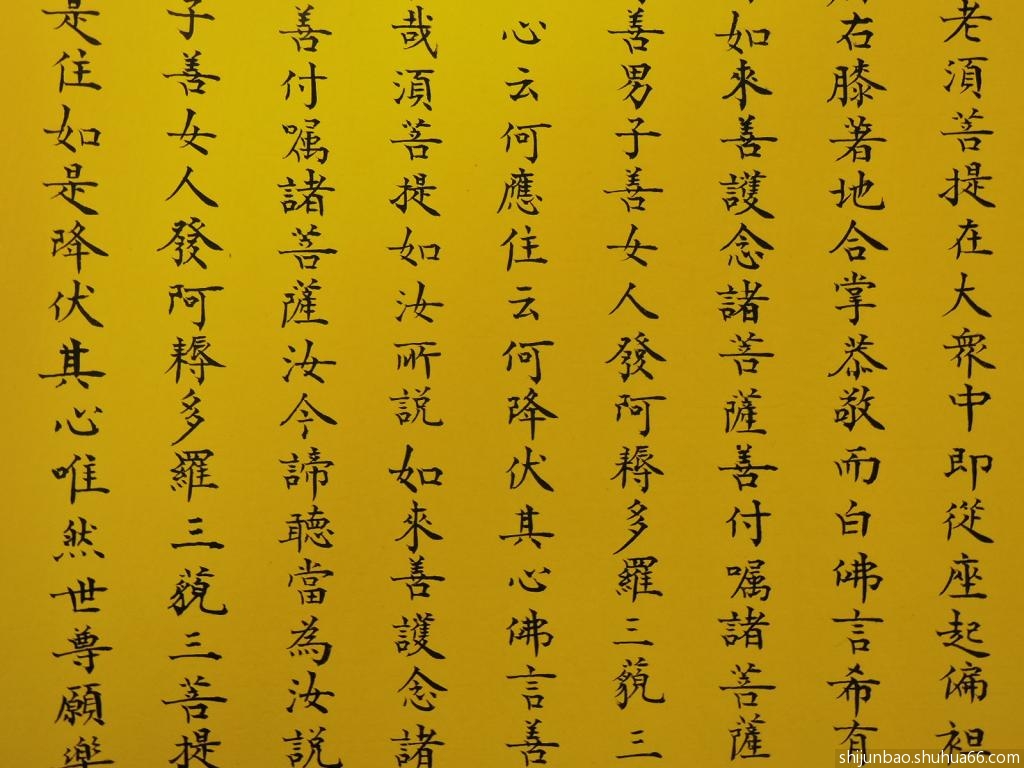 老須菩提在大衆中即從座起偏袒
右膝著地合掌恭敬而白佛言希有
如來善護念諸菩薩善付嘱諸菩薩
善男子善女人發阿耨多羅三藐三
心云何應住云何降伏其心佛言善
哉須菩提如汝所説如來善護念諸
善付嘱諸菩薩汝今諦聽當為汝説
子善女人發阿耨多羅三藐三菩提
是住如是降伏其心唯然世尊願樂
shijunbao.shuhua66.com